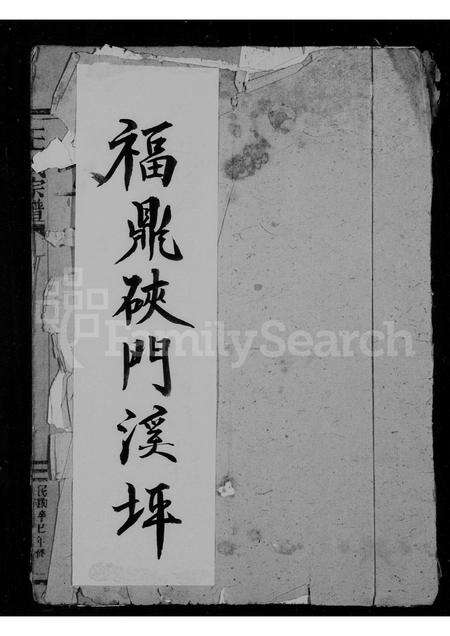 福鼎硤門溪坪
王氏宗譜
民國辛巳年修
FamilySearch